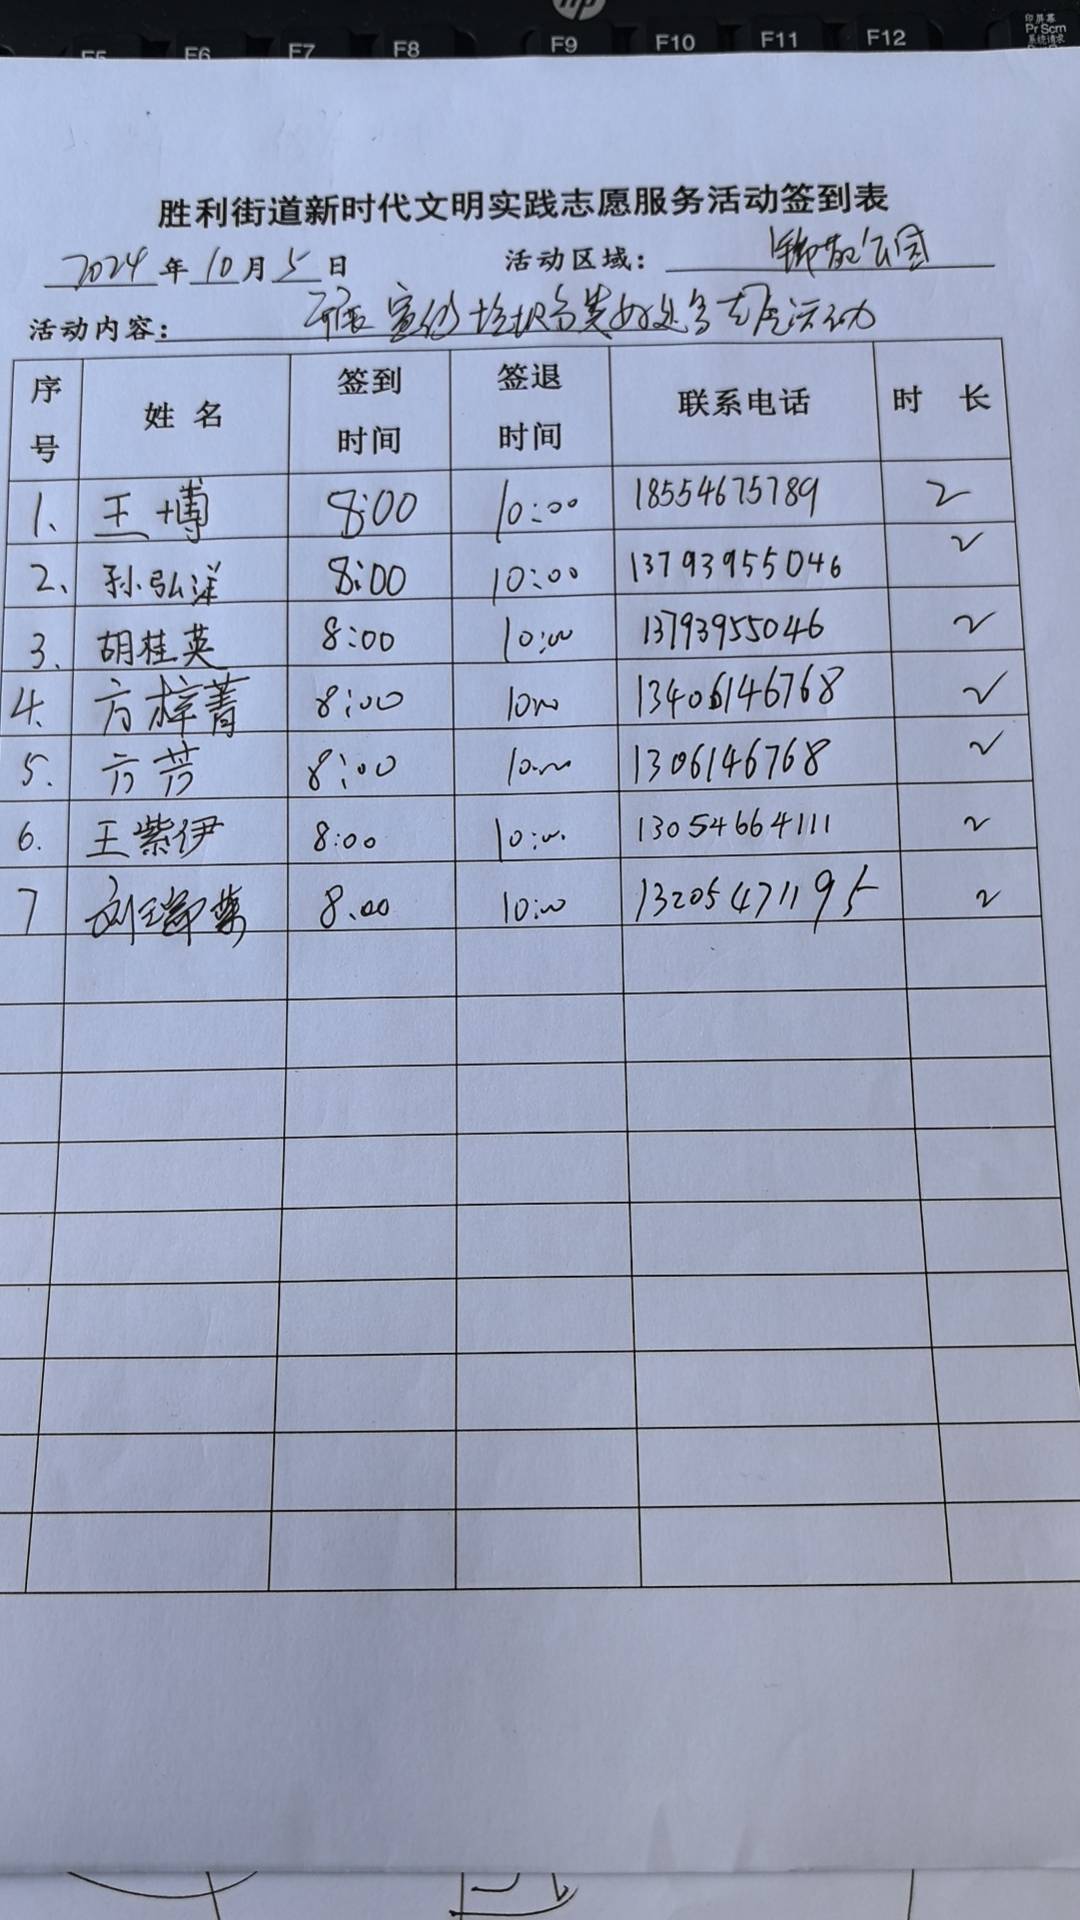 F5 F6 F7 F8 F9 F10 F11 F12 印屏幕
Pr Scrn
系统请求
胜利街道新时代文明实践志愿服务活动签到表
2024年10月5日 活动区域：公园
活动内容：开展宣传垃圾分类好处多志愿活动
序号 姓名 签到时间 签退时间 联系电话 时长
1、 王博 8:00 10:00 18554675789 2
2、 孙弘洋 8:00 10:00 13793955046 2
3、 胡桂英 8:00 10:00 13793955046 2
4、 方梓菁 8:00 1000 13406146768 2
5. 方芳 8:00 10:00 1306146768 2
6. 王紫伊 8:00 10:00 13054664111 2
7 刘 8.00 10:00 13205471195 2